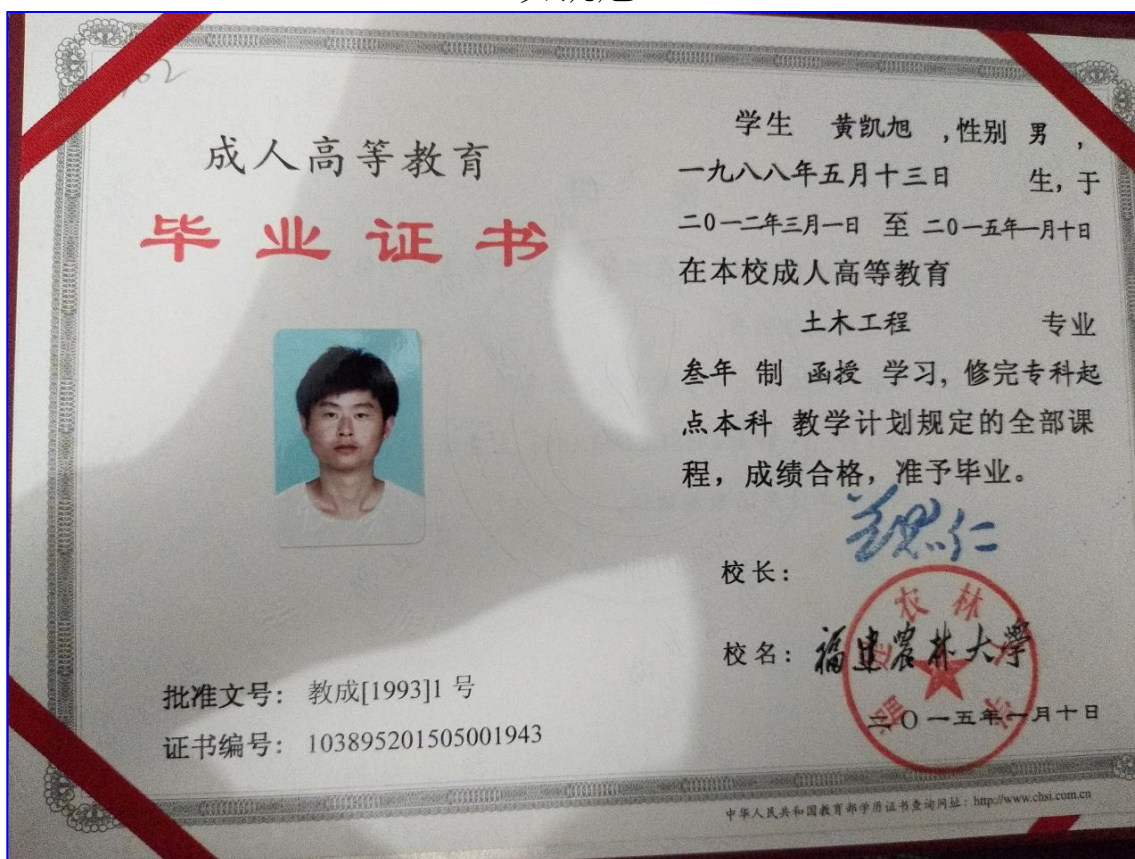 成人高等教育
毕业证书
批准文号： 教成[1993]1 号
证书编号： 103895201505001943
学生 黄凯旭 ，性别 男 ，
一九八八年五月十三日 生，于
二0一二年三月一日 至 二0一五年一月十日
在本校成人高等教育
土木工程 专业
叁年 制 函授 学习，修完专科起
点本科 教学计划规定的全部课
程，成绩合格，准予毕业。
校长：
校名：福建农林大学
福建农林大学
二〇一五年一月十日
中华人民共和国教育部学历证书查询网址：http://www.chsi.com.cn